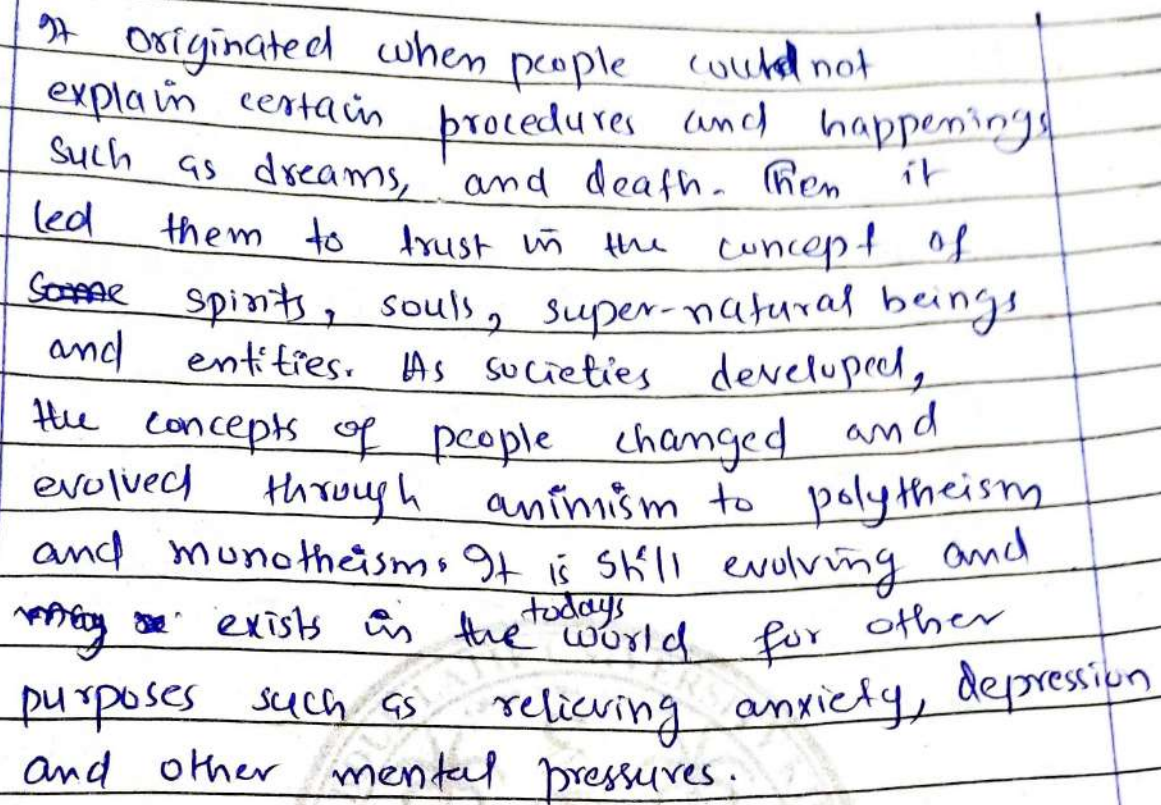 It originated when people could not
explain certain procedures and happenings
such as dreams, and death. Then it
led them to trust in the concept of
some spirits, souls, super-natural beings
and entities. As societies developed,
the concepts of people changed and
evolved through animism to polytheism
and monotheism. It is still evolving and
exists in the todays world for other
purposes such as relieving anxiety, depression
and other mental pressures.